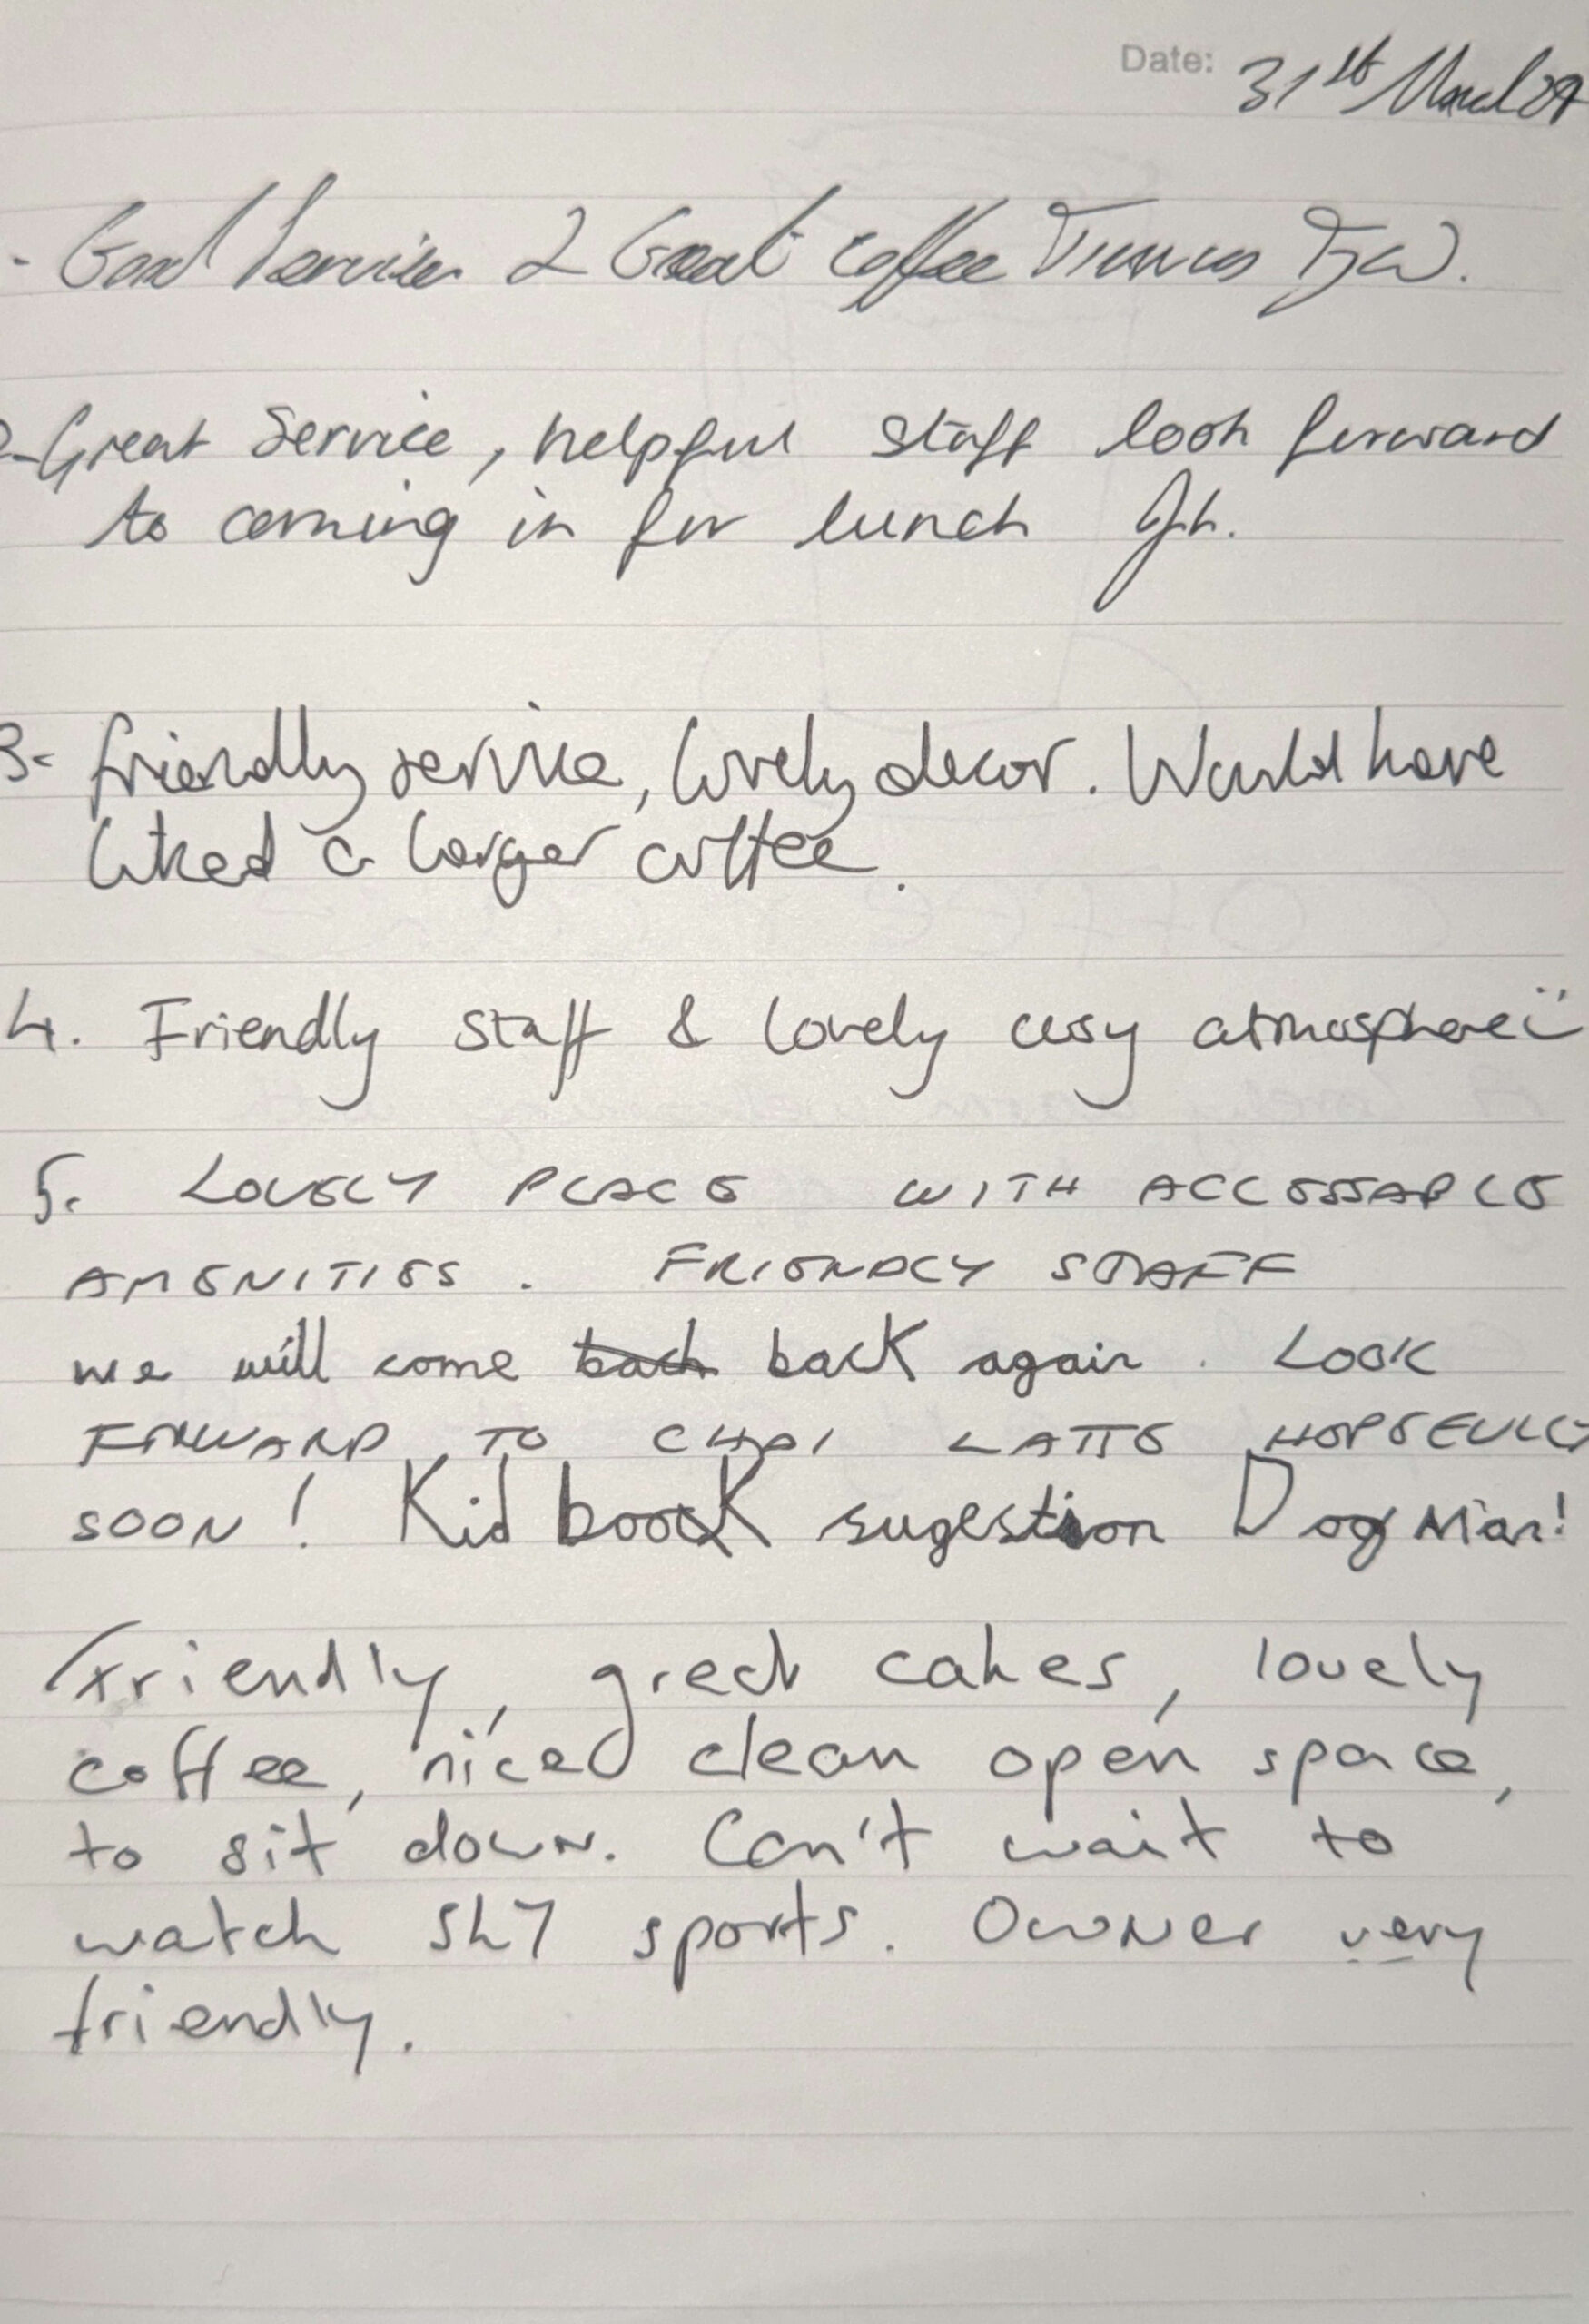 Date: 31st March
- Good Service & Great coffee
2-Great Service, helpful staff look forward
to coming in for lunch Jh.
3- friendly service, lovely decor. Would have
liked a larger coffee.
4. Friendly staff & lovely cosy atmosphere
5. LOVELY PLACE WITH ACCESSABLE
AMENITIES. FRIENDLY STAFF
we will come back back again. LOOK
FORWARD TO CHAI LATTE HOPEFULLY
SOON! Kid book sugestion Dog Man!
Friendly, great cakes, lovely
coffee, nice clean open space,
to sit down. Can't wait to
watch SKY sports. Owner very
friendly.